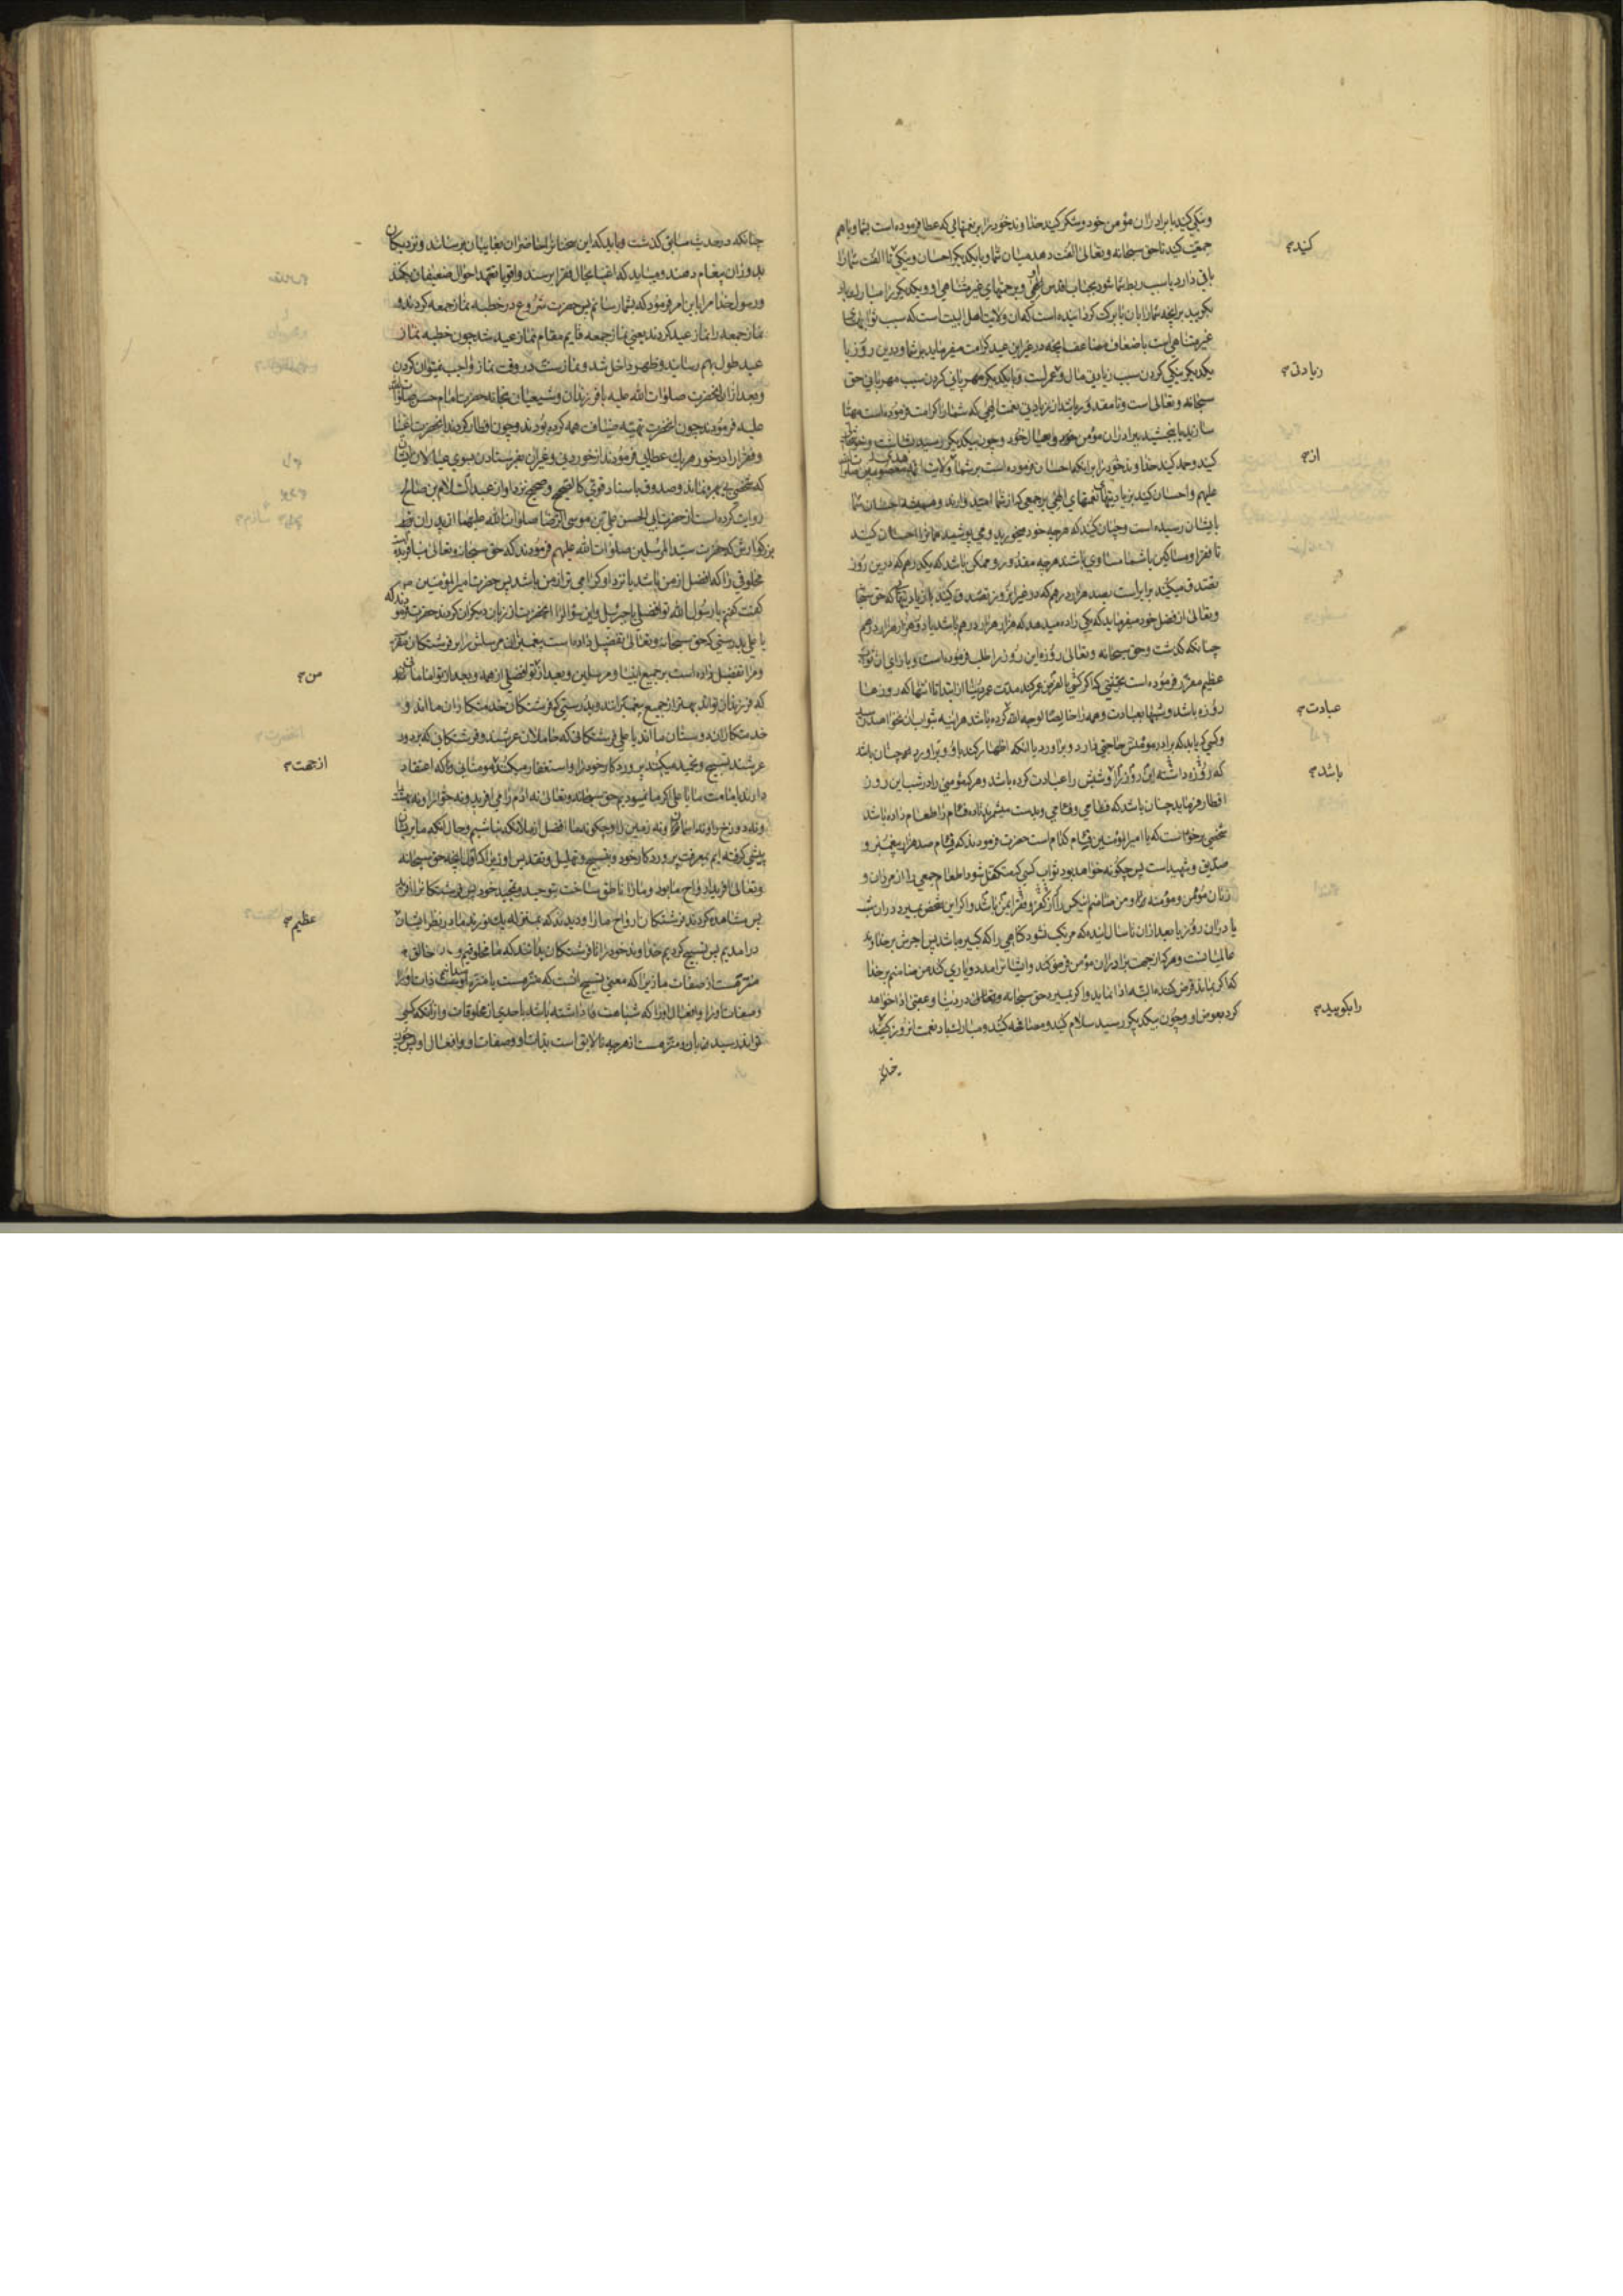 و نیکی کنید با برادران مؤمن خود و شکر کنید خداوند خود را بر نعمتهایی که عطا فرموده است بشما و باهم
جمعیت کنید تا حق سبحانه و تعالی الفت دهد میان شما و با یکدیکر احسان و نیکی تا الفت شما را
باقی دارد یا سبب ربط شما شود بجناب اقدس الهی و برحمتهای غیر متناهی او و یکدیکر را مبارک باد
بکویید بر آنچه شما را بآن با برکت کردانیده است که آن ولایت اهل البیت است که سبب ثوابهای
غیر متناهی است باضعاف مضاعف آنچه در غیر این عید کرامت میفرماید بر شما و درین روز با
یکدیکر نیکی کردن سبب زیادتی مال و عمر است و با یکدیکر مهربانی کردن سبب مهربانی حق
سبحانه و تعالی است و تا مقدور باشد از زیادتی نعمت الهی که شما را کرامت فرموده است مهیا
سازید یا ببخشید ببرادران مؤمن خود و بعیال خود و چون بیکدیکر رسید بشاشت و خوشحالی
کنید و حمد کنید خداوند خود را بر آنکه احسان فرموده است بر شما ولایت ائمه معصومین صلوات الله
علیهم و احسان کنید بزیادتیهای نعمتهای الهی بر جمعی که از شما امید دارند و همیشه احسان شما
بایشان رسیده است و چنان کنید که هرچه خود میخورید و می پوشید همانرا احسان کنید
تا فقرا و مساکین با شما مساوی باشند هرچه مقدور و ممکن باشد که یکدرهم که درین روز
تصدق میکنند برابر است بصد هزار درهم که در غیر این روز تصدق کنید با زیادتیها که حق سبحانه
و تعالی از فضل خود میفرماید که یکی زاده میدهد که هزار هزار درهم باشد یا دو هزار هزار درهم
چنانکه کذشت و حق سبحانه و تعالی روزه این روز را طلب فرموده است و بازای آن ثواب
عظیم مقرر فرموده است بحیثیتی که اکر کسی بالفرض عمر کند مدت عمر دنیا از ابتدا تا انتها که روزها
روزه باشد و شبها بعبادت و همه را خالصا لوجه الله کرده باشد هرآینه ثواب آن نخواهد رسید
و کسی که بیابد که برادر مؤمنش حاجتی دارد و برآورد یا آنکه اظهار کند باو و برآورد همچنان باشد
که روزه داشته این روز را و شبش را عبادت کرده باشد و هر که مؤمنی را در شب این روز
افطار فرماید چنان باشد که فئامی و فئامی و بدست میشمرد تا ده فئام را طعام داده باشد
شخصی برخواست که یا امیرالمؤمنین فئام کدام است حضرت فرمودند که فئام صد هزار پیغمبر و
صدیق و شهید است پس چکونه خواهد بود ثواب کسی که متکفل شود اطعام جمعی را از مردان و
زنان مؤمن و مؤمنه و من ضامنم اینکس را که از کفر و فقر ایمن باشد و اکر این شخص بمیرد در آن شب
یا در آن روز یا بعد از آن تا سال آینده که مرتکب نشود کناهی را که کبیره باشد پس اجرش بر خداوند
عالمیان است و هر که از جهت برادران مؤمن قرض کند و ایشان را مدد و یاری کند من ضامنم بر خدا
که اکر بماند قرض کننده البته ادا نماید و اکر بمیرد حق سبحانه و تعالی در دنیا و عقبی ادا خواهد
کرد بعوض او و چون بیکدیکر رسید سلام کنید و مصافحه کنید و مبارکباد نعمت این روز بکنید
کنید
زیادتی
از
عبادت
باشد
را بکویید
چنانکه در حدیث سابق کذشت و باید که این سخنانرا حاضران بغایبان برسانند و نزدیکان
بدوران پیغام دهند و میباید که اغنیا بحال فقرا برسند و اقویا تعهد احوال ضعیفان بکنند
و رسول خدا مرا باین امر فرمود که بشما رسانم پس حضرت شروع در خطبه نماز جمعه کردند و
نماز جمعه را نماز عید کردند یعنی نماز جمعه قایم مقام نماز عید شد چون خطبه نماز
عید طول بهم رسانید و ظهر داخل شد و نماز سنت در وقت نماز واجب نمیتوان کردن
و بعد از آن آنحضرت صلوات الله علیه با فرزندان و شیعیان بخانه حضرت امام حسن صلوات الله
علیه فرمودند چون آنحضرت تهیه ضیافت همه کرده بودند و چون افطار کردند آنحضرت اغنیا
و فقرا را در خور هریک عطایی فرمودند از خوردنی و غیر آن بفرستادن بسوی عیالان ایشان
و صدوق باسناد قوی کالصحیح و صحیح نزد او از عبدالسلام بن صالح
روایت کرده است از حضرت ابی الحسن علی بن موسی الرضا صلوات الله علیهما از پدران
بزرکوارش که حضرت سید المرسلین صلوات الله علیهم فرمودند که حق سبحانه و تعالی نیافریده
مخلوقی را که افضل از من باشد یا نزد او کرامی تر از من باشد پس حضرت امیرالمؤمنین
کفت کفتم یا رسول الله تو افضلی یا جبرئیل و این سؤال را آنحضرت از زبان دیکران کردند حضرت فرمودند که
یا علی بدرستی که حق سبحانه و تعالی تفضیل داده است پیغمبران مرسلش را بر فرشتکان مقرب
و مرا تفضیل داده است بر جمیع انبیا و مرسلین و بعد از تو افضلی از همه و بعد از تو امامانند
که فرزندان تواند بهتر از جمیع پیغمبرانند و بدرستی که فرشتکان خدمتکاران ما اند و
خدمتکاران دوستان ما اند یا علی فرشتکانی که حاملان عرشند و فرشتکانی که بر دور
عرشند تسبیح و تحمید میکنند پروردکار خود را و استغفار میکنند مؤمنانی را که اعتقاد
دارند بامامت ما یا علی اکر ما نمیبودیم حق سبحانه و تعالی نه آدم را می آفرید و نه حوا را و نه بهشت
و نه دوزخ را و نه آسمان و نه زمین را و چکونه ما افضل از ملائکه نباشیم و حال آنکه ما بر ایشان
پیشی کرفته ایم بمعرفت پروردکار خود و بتسبیح و تهلیل و تقدیس او زیرا که اول آنچه حق سبحانه
و تعالی آفرید ارواح ما بود و ما را ناطق ساخت بتوحید و تمجید خود پس فرشتکانرا آفرید
پس مشاهده کردند فرشتکان ارواح ما را و دیدند که بمنزله یک نورند ما در نظر ایشان
درآمدیم پس تسبیح کردیم خداوند خود را تا فرشتکان بدانند که ما مخلوقیم و خالق
منزه است از صفات ما زیرا که معنی تسبیح آنست که منزه است یا منزه میدانیم ذات او را
و صفات او را و افعال او را که شباهت داشته باشد باحدی از مخلوقات و از آنکه کسی
تواند رسید بآن و منزه است از هرچه نالایق است بذات او و صفات او و افعال او پس چون
من
ازجهت
عظیم